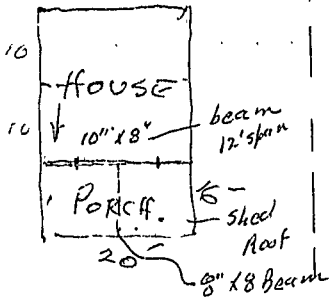 10
HOUSE
10
10" X 8"
beam
12' span
PORCH.
6 -
Shed
Roof
20
8" X 8 Beam